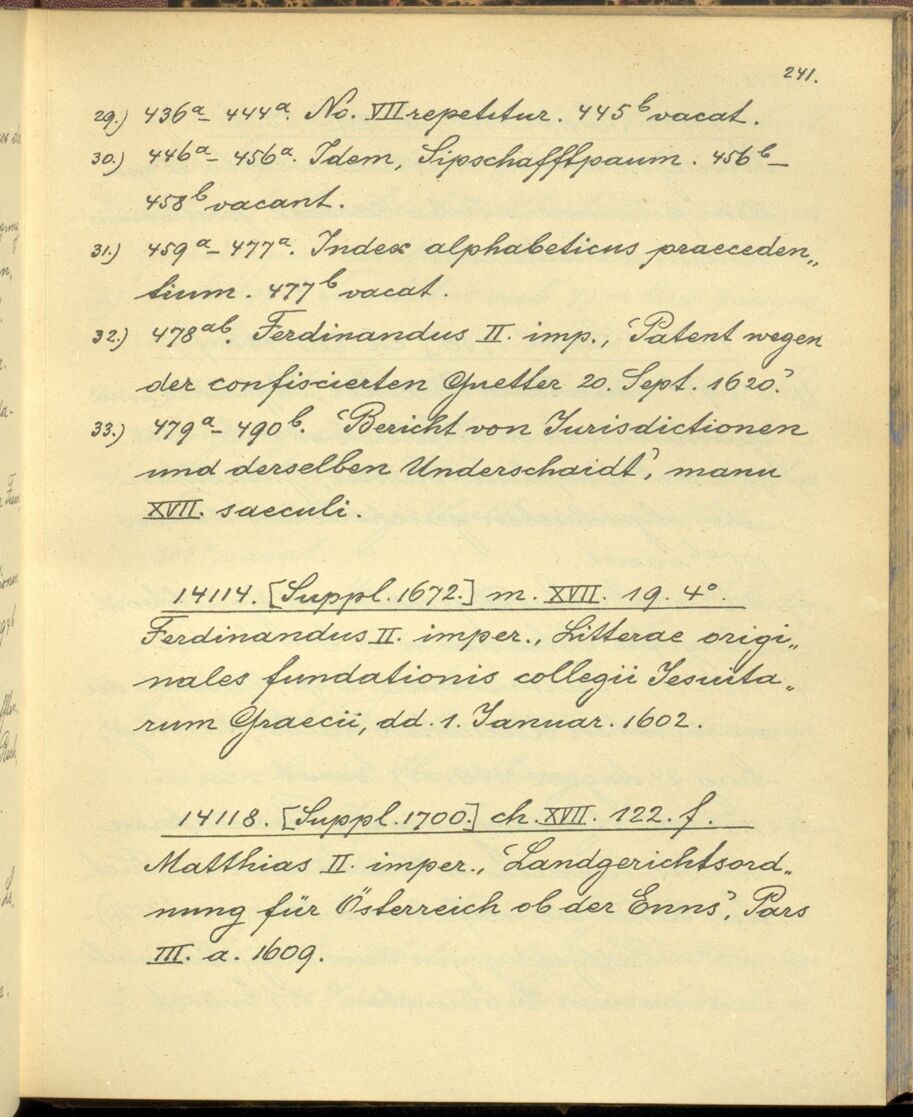 241.
29.) 436a- 444a. No. VII repetitur. 445b vacat.
30.) 446a- 456a. Idem, Sipschafftpaum. 456b-
458b vacant.
31.) 459a- 477a. Index alphabeticus praeceden„
tium. 477b vacat.
32.) 478ab. Ferdinandus II. imp., ‘Patent wegen
der confiscierten Guetter 20. Sept. 1620.’
33.) 479a- 490b. ‘Bericht von Jurisdictionen
und derselben Underschaidt’, manu
XVII. saeculi.
14114. [Suppl. 1672.] m. XVII. 19. 4o.
Ferdinandus II. imper., Litterae origi„
nales fundationis collegii Jesuita„
rum Graecii, dd. 1. Januar. 1602.
14118. [Suppl. 1700.] ch. XVII. 122. f.
Matthias II. imper., ‘Landgerichtsord„
nung für Österreich ob der Enns’, Pars
III. a. 1609.